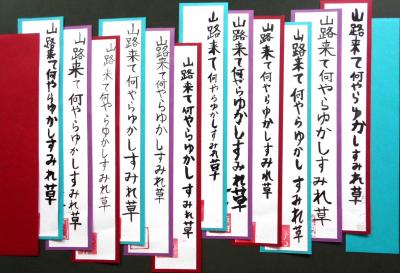 山路来て何やらゆかしすみれ草
山路来て何やらゆかしすみれ草
山路来て何やらゆかしすみれ草
山路来て何やらゆかしすみれ草
山路来て何やらゆかしすみれ草
山路来て何やらゆかしすみれ草
山路来て何やらゆかしすみれ草
山路来て何やらゆかしすみれ草
山路来て何やらゆかしすみれ草
山路来て何やらゆかしすみれ草
山路来て何やらゆかしすみれ草
山路来て何やらゆかしすみれ草